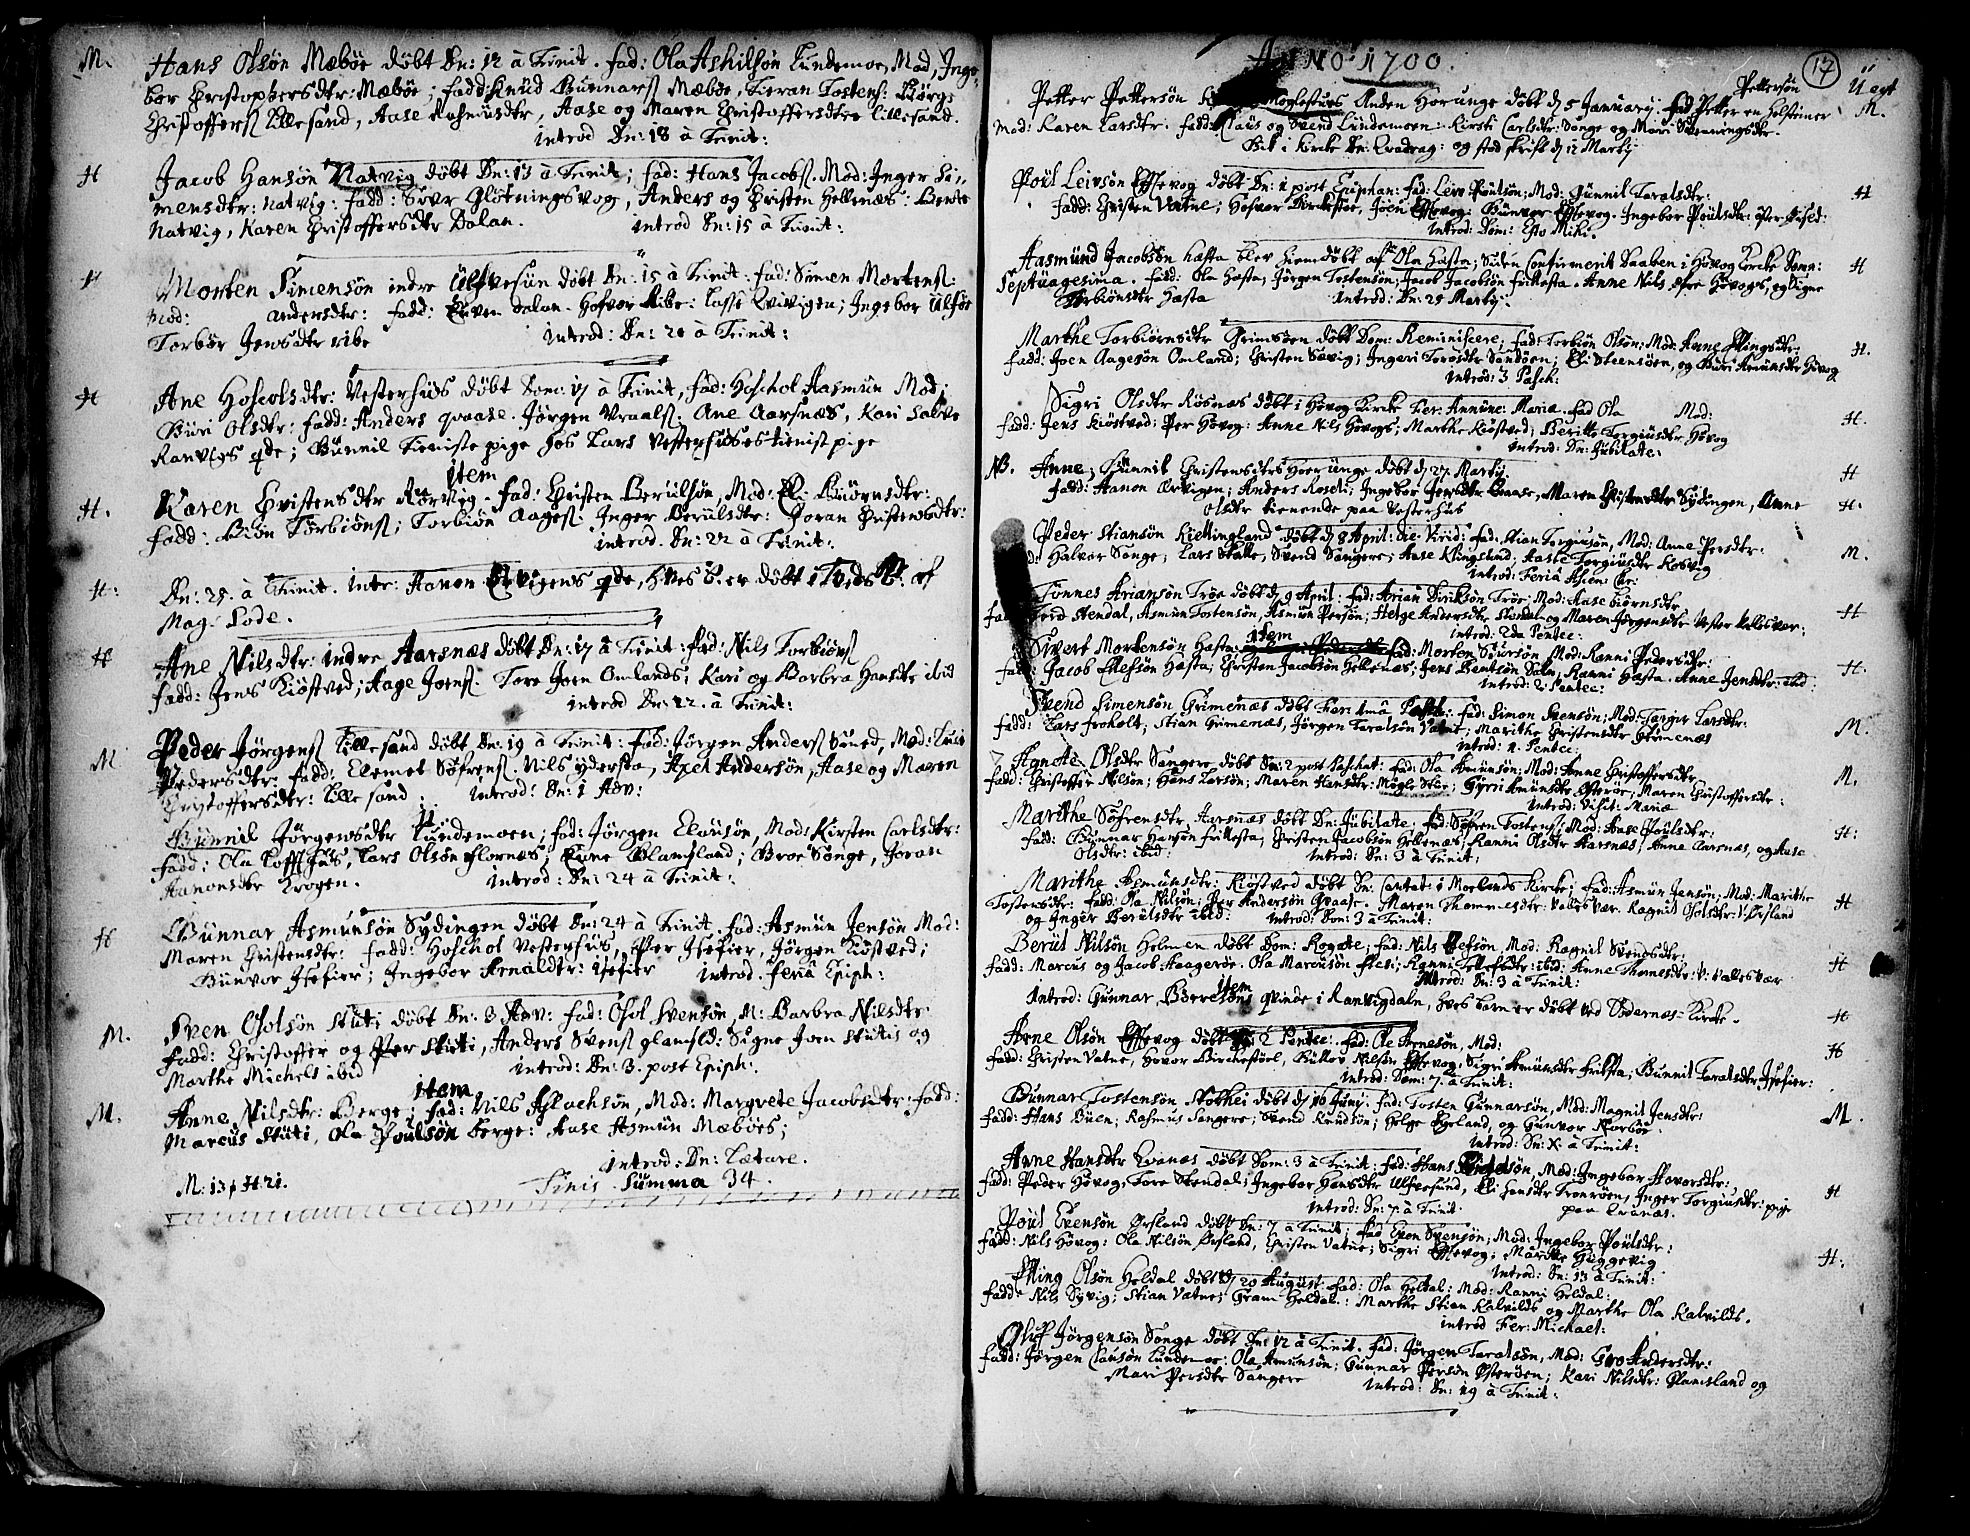 M. Hans Olsøn Mæbøe døbt Dn: 12 à Trinit. fad: Ola Ashilsøn Lundemoe, Mod, Inge-
bor Christophersdtr: Mæbøe; fadd: Knud Gunnars. Mæbøe, Tieran Tostens: Børge
Christoffers. Lillesand, Aase Rasmusdtr, Aase og Maren Christoffersdtre Lillesand.
Introd Dn: 18 à Trinit:
H Jacob Hansøn Natvig døbt Dn: 13 à Trinit; fad: Hans Jacobs. Mod: Inger Si-
mensdtr: Natvig: fadd: Siver Gløtningsvog, Anders og Christen Hellenæs: Berte
Natvig, Karen Christoffersdtr Dalan. Introd Dn: 15 à Trinit:
H Morten Simensøn indre Ulfvesun døbt Dn: 15 à Trinit: fad: Simen Mortens.
Mod: Andersdtr: fadd: Even Dalan. Hofvor Ribe: Lasse Qvivigen; Ingebor Ulfsøe
Torbør Jensdtr ribe Introd: Dn: 20 à Trinit:
H Ane Hoscolsdtr: Vesterhus døbt Dom: 17 à Trinit, fad: Hoschol Aasmun Mod;
Guri Olsdtr: fadd: Anders qvaase. Jørgen Vraals. Ane Aarsnæs, Kari Salve
Ranvigs qde; Gunnil Tieniste pige hos Lars Vesterhuses tienist pige
item
H. Karen Christensdtr Rørvig. fad: Christen Berulsøn, Mod: Eli Biørnsdtr:
fadd: Biøn Torbiøns; Torbiøn Aages. Inger Berulsdtr: Joran Christensdtr:
introd. Dn: 22 à Trinit:
H: Dn: 25. à Trinit. intr: Aanon Ervigens qde, hves B. er døbt i Tveds K. af
Mag: Lode.
H Ane Nilsdtr: indre Aarsnæs døbt Dn: 17 à Trinit: fad: Nils Torbiøns
fadd: Jens Kiøstved; Aage Joens. Tore Joen Omlands; Kari og Barbra Hansdtr ibid
introd Dn: 22. à Trinit:
M Peder Jørgens. Lillesand døbt Dn: 19 à Trinit: fad: Jørgen Anders. Smed, Mod: Lucie
Pedersdtr: fadd: Clemet Søfrens. Nils ydersta, Axel Andersøn, Aase og Maren
Christoffersdtr: Lillesand: Introd: Dn: 1 Adv:
Gunnil Jørgensdtr Lundemoen; fad: Jørgen Clausøn, Mod: Kirsten Carlsdtr:
fadd: Ola Loffthus, Lars Olsøn Flornæs; Eune Glamsland; Groe Songe, Joran
Aanonsdtr Krogen. Introd: Dn: 24 à Trinit:
H Gunnar Asmunsøn Sydingen døbt Dn: 24 à Trinit. fad: Asmun Jensøn Mod:
Maren Christensdtr: fadd: Hoschol Vesterhus, Per Isefier, Jørgen Kiøstved;
Gunvor Isefier; Ingebor Arnaldtr: Isefier Introd. Feriâ Epiph:
M. Sven Osolsøn Stuti døbt Dn: 3 Adv: fad: Osol Svensøn, M: Barbra Nilsdtr
fadd: Christoffer og Per Stuti, Anders Svens. glamsld: Signe Joen Stutis og
Marthe Michels ibid Introd: Dn: 3. post Epiph:
item
M. Anne Nilsdtr: Berge; fad: Nils Aslachsøn, Mod: Margrete Jacobsdtr: fadd:
Marcus Stuti, Ola Poulsøn berge: Aase Asmun Mæbøes;
Introd: Dn: Lætare.
M: 13, H: 21. Finis Summa 34.
ANNO: 1700. 17
Petter Pettersøn Møglestues Anden Horunge døbt d 5 January. fad: Petter Pettersøn en Holsteiner Uægt M.
Mod: Karen Larsdtr. fadd: Claus og Svend Lundemoen: Kirsti Carlsdtr: Songe og Mari Svenningsdtr.
Blk i Kircke Dn: Qvadrag: og stod skrift d 12 Marty
Poul Leivsøn Eftevog døbt Dn: 1 post Epiphan: fad: Leiv Poulsøn; Mod: Gunnil Taralsdtr: H
fadd: Christen Vatne; Hofvor Birkestøe, Joen Eftevog: Gunvor Eftevog. Ingebor Poulsdtr:
Introd: Dom: Esto Mihi.
Aasmund Jacobsøn Hasta blev hiemdøbt af Ola Hasta; Siden Confirmerit Daaben i Høvog Kircke Dom: H
Septuagesima. fadd: Ola Hasta, Jørgen Tostensøn; Jacob Jacobsøn Frikasta. Anne Nils Øfre Høvogs, og Signe
Torbiønsdtr Hasta Introd: Dn: 25 Marty:
Marthe Torbiørnsdtr Grimsøen døbt Dom: Reminiscere; fad: Torbiøn Olsøn; Mod: Anne Ellingsdtr H.
fadd: Joen Aagesøn Omland; Christen Søevig; Ingeri Torosdtr Sandøen; Eli Steensøen, og Guri Amundsdtr Høvog
Introd: 3 Pasch:
Sigri Olsdtr Røsnæs døbt i Høvog Kircke Fer: Annunc: Mariæ. fad Ola Mod: H.
fadd: Jens Kiøstved; Per Høvog: Anne Nils Høvogs; Marthe Kiøstved; Beritte Torgiusdtr Høvog
Introd: Dn: Jubilate:
NB. Anne, Gunnil Christensdtrs Hoerunge døbt d 27 Marty H
fadd: Aanon Ervigen; Anders Rosedi; Ingebor Jensdtr Qvaase, Maren Christensdtr Sydingen, Anne H.
Olsdtr tienende paa Vesterhus
Peder Stiansøn Kiettingland døbt d 8 April: Die Virid: fad: Stian Torgiusøn, Mod: Anne Persdtr: M.
Halvor Songe, Lars Skalle, Svend Sangere; Aase Klingsund, Aasle Torgiusdtr Kosvig
Introd: Feriâ Ascen: Chr:
Tønnes Ariansøn Trøe døbt d 9 April: fad: Arian Diriksøn Trøe: Mod: Aase biørnsdtr H
Tord Stendal, Asmun Tostensøn, Asmun Persøn; Helge Andersdtr Stendal og Maren Jørgensdtr Vester Vallesvær:
Introd: 2da Pentec:
item
Sivert Mortensøn Hasta: fad: Morten Siursøn Mod: Ranni Pedersdtr: H.
fadd: Jacob Ellefsøn Hasta, Christen Jacobsøn Hellenæs; Jens Bentsøn Saln; Ranni Hasta. Anne Jensdtr: ibid:
Introd: 2. Pentec:
Svend Simensøn Grimenæs døbt Fer: 1mâ Pasch: fad: Simon Svensøn; Mod: Torgier Larsdtr. M.
fadd: Lars froholt, Stian Grimenæs, Jørgen Taralsøn Vatne; Marithe Christensdtr Grimenæs
Introd: 2. Pentec:
Agnete Olsdtr Sangere døbt Dn: 2 post Paschat: fad: Ola Amunsøn; Mod: Anne Christoffersdtr M.
fadd: Christoffer Nilsøn; Hans Larsøn; Maren Hansdtr: Møgle Stue; Gyrri Amundsdtr Østerøe; Maren Christoffersdtr:
Introd: Visit: Mariæ
Marithe Søfrensdtr Aarsnæs døbt Dn: Jubilate, fad: Søfren Tostens; Mod: Aase Poulsdtr: H:
fadd: Gunnar Hansøn Frikasta, Christen Jacobsøn Hellenæs; Ranni Olsdtr Aarsnæs; Anne Aarsnæs, og Aase
Olsdtr: ibid: Introd: Dn: 3 à Trinit:
Marithe Asmunsdtr: Kiøstved døbt Dn: Cantat: i Moelands Kircke; fad: Asmun Jensøn; Mod: Marithe H
Tostensdtr: fadd: Ola Nilsøn; Per Andersøn Qvaase. Maren Thommesdtr: Valles Vær. Ragnil Osolsdtr: V: Øfsland
og Inger Berulsdtr ibid: Introd: Dom: 3 à Trinit:
Berul Nilsøn Holmen døbt Dom: Rogate; fad: Nils Olefsøn, Mod: Ragnil Svendsdtr: H
fadd: Marcus og Jacob Aagerøe. Ola Marcusøn ; Ranni Tellefsdtr: ibid: Anne Thomesdtr: V: Vallesvær
Introd: Dn: 3 à Trinit:
item
Introd: Gunnar Børresøns qvinde i Ranvigdaln, hves barn er døbt ved Oddernæs-Kircke. H
Arne Olsøn Eftevog døbt 2 Pentec:. fad: Ole Arnesøn, Mod: H
fadd: Christen Vatne, Hovor Birchestøel, Gullov Nilsøn Eftevog, Sigri Asmunsdtr Friksta, Gunnil Taralsdtr Isefier:
Introd: Dom: 7. à Trinit:
Gunnar Tostensøn Stokhei døbt d 10 Juny. fad: Tosten Gunnarsøn, Mod: Magnil Jensdtr: M.
fadd: Hans Buen; Rasmus Sangere; Svend Knudsøn; Helge Hyeland, og Gunvor Norbøe.
Introd: Dn: X. à Trinit:
Anne Hansdtr Qvanæs døbt Dom: 3 à Trinit: fad: Hans , Mod: Ingebor Hovorsdtr: H
fadd: Peder Høvog, Tore Stendal; Ingebor Hansdtr Ulfvesund, Eli hansdtr Tronrøen, Inger Torgiusdtr: pige
paa Qvanæs.
Introd: Dn: 7. à Trinit.
Poul Evensøn Øfsland døbt Dn: 7 à Trinit; fad Even Svensøn; Mod: Ingebor Poulsdtr: H.
fadd: Nils Høvog: Ola Nilsøn Øfsland, Christen Vatne; Sigri Eftevog; Marithe Huggevig
Introd: Dn: 13 à Trinit:
Elling Olsøn Heldal døbt d 20 August. fad: Ola Heldal: Mod: Ranni Heldal:
fadd: Nils Syvig; Stian Vatne; Gram Heldal: Marthe Stian Kalvilds og Marthe Ola Kalvilds.
introd Fer: Michael:
Oluf Jørgensøn Songe døbt Dn: 12 à Trinit. fad: Jørgen Taralsøn, Mod: Gro Andersdtr:
fadd: Jørgen Clausøn Lundemoe: Ola Amunsøn; Gunnar Persøn Østerøen; Kari Nilsdtr: Glamsland og
Mari Persdtr Sangere Introd: Dn: 19 à Trinit: